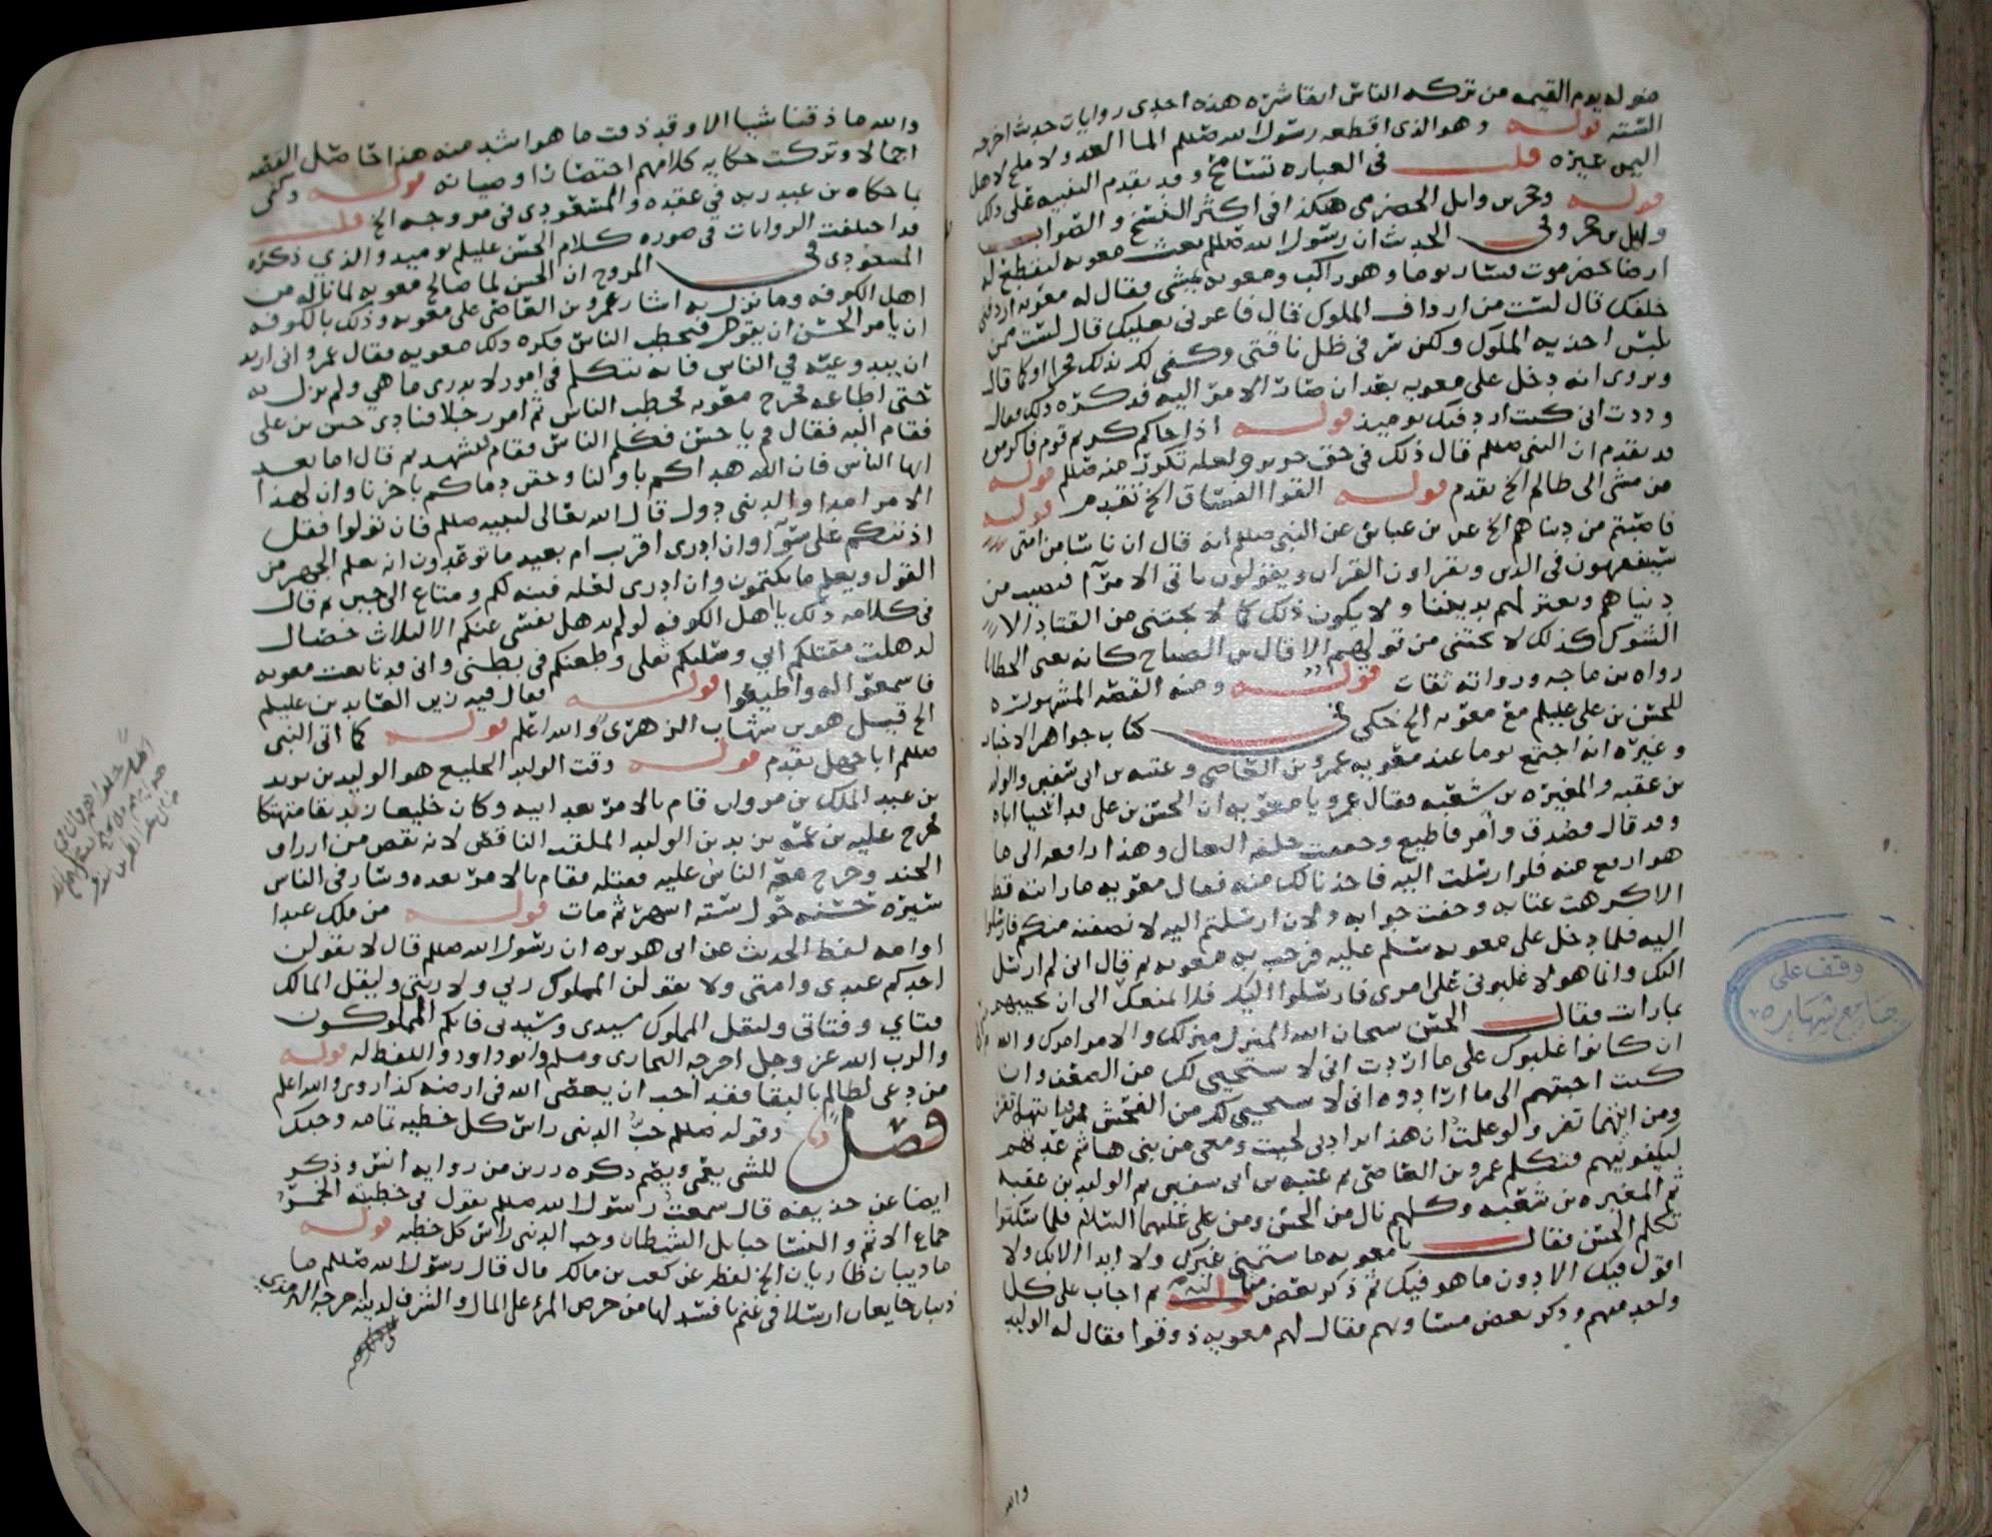 منزله يوم القيمه من تركه الناس اتقا شره هذه احدى روايات حديث اخرجه
الشته قوله وهو الذي اقطعه رسول الله صللم الما العد ولا ملح لاهل
اليمن غيره قلت في العباره تسامح وقد تقدم التنبيه على ذلك
قوله وحجر بن وايل الحضرمي هكذا في اكثر النسخ والصواب
وايل بن حجر وفي الحديث ان رسول الله صللم بعث معويه ليقطع له
ارضا بحضرموت فسار يوما وهو راكب ومعويه يمشي فقال له معويه اردفني
خلفك قال لست من ارداف الملوك قال فاعرني نعليك قال لست ممن
يلبس احذيه الملوك ولكن سر في ظل ناقتي وكفى لك بذلك فخرا او كما قال
ويروى انه دخل على معويه بعد ان صار الامر اليه فذكره ذلك فقال
وددت اني كنت اردفتك يوميذ قوله اذا جاكم كريم قوم فاكرموه
قد تقدم ان النبي صللم قال ذلك في حق جرير ولعله تكرر منه صللم قوله
من مشى الى ظالم الخ تقدم قوله القوا الفساق الخ تقدم قوله
فاصبتم من دنياهم الخ عن بن عباس عن النبي صللم انه قال ان ناسا من امتي
سيتفقهون في الدين ويقراون القران ويقولون ناتي الامرآ فنصيب من
دنياهم ونعتزلهم بديننا ولا يكون ذلك كما لا يجتنى من القتاد الا
الشوك كذلك لا يجتنى من قولهم الا قال بن الصباح كانه يعني الخطايا
رواه بن ماجه ورواته ثقات قوله ومنه القصه المشهوره
للحسن بن علي عليلم مع معويه الخ حكى في كتاب جواهر الاخبار
وغيره انه اجتمع يوما عند معويه عمرو بن العاصي وعتبه بن ابي سفين والوليد
بن عقبه والمغيره بن شعبه فقال عمرو يا معويه ان الحسن بن علي قد احيا اباه
وقد قال فصدق وامر فاطيع وخفقت خلفه النعال وهذا رافعه الى ما
هو ارفع منه فلو ارسلت اليه فاخذنا لك منه فقال معويه ما رايته قط
الا كرهت عتابه وخفت جوابه ولان ارسلتم اليه لانصفنه منكم فارسلوا
اليه فلما دخل على معويه سلم عليه فرحب به معويه ثم قال اني لم ارسل
اليك وانما هولا غلبوني على امري فارسلوا اليك فلا يمنعك الى ان تجيبهم
فقال الحسن سبحان الله المنزل منزلك والامر امرك والله
ان كانوا غلبوك على ما اردت اني لا ستحيي لك من الضعف وان
كنت اجبتهم الى ما ارادوه اني لا ستحيي لك من الفحش
ومن ايهما تفر ولو علمت ان هذا يراد بي لجيت ومعي من بني هاشم عدتهم
ليكفونيهم فتكلم عمرو بن العاصي ثم عتبه بن ابي سفين ثم الوليد بن عقبه
ثم المغيره بن شعبه وكلهم نال من الحسن ومن علي عليهما السلام فلما سكتوا
تكلم الحسن فقال يا معويه ما ستمني غيرك ولا ابدا الا بك ولا
اقول فيك الا دون ما هو فيك ثم ذكر بعض مثالبه ثم اجاب على كل
واحد منهم وذكر بعض مساويهم فقال لهم معويه ذوقوا فقال له الوليد
والله
وقف على
جامع شهاره
والله ما ذقنا شيا الا وقد ذقت ما هو اشد منه هذا حاصل القصه
اجمالا وتركت حكايه كلامهم اختصارا وصيانه قوله وكفى
بما حكاه بن عبد ربه في عقده والمسعودي في مروجه الخ قلت
قد اختلفت الروايات في صوره كلام الحسن عليلم يوميذ والذي ذكره
المسعودي في المروج ان الحسن لما صالح معويه لما ناله من
اهل الكوفه وما نزل به اشار عمرو بن العاصي على معويه وذلك بالكوفه
ان يامر الحسن ان يقوم فيخطب الناس فكره ذلك معويه فقال عمرو اني اريد
ان يبدو عيه في الناس فانه يتكلم في امور لا يدري ما هي ولم يزل به
حتى اطاعه فخرج معويه فخطب الناس ثم امر رجلا فنادى حسن بن علي
فقام اليه فقال قم يا حسن فكلم الناس فقام فتشهد ثم قال اما بعد
ايها الناس فان الله هداكم باولنا وحقن دماكم باخرنا وان لهذا
الامر امدا والدنيى دول قال الله تعالى لنبيه صللم فان تولوا فقل
اذنتكم على سوآ وان ادري اقرب ام بعيد ما توعدون انه يعلم الجهر من
القول ويعلم ما تكتمون وان ادري لعله فتنه لكم ومتاع الى حين ثم قال
في كلامه ذلك يا اهل الكوفه لو لم تذهل نفسي عنكم الا لثلاث خصال
لذهلت مقتلكم ابي وسلبكم ثقلي وطعنكم في بطني واني قد بايعت معويه
فاسمعوا له واطيعوا قوله فقال فيه زين العابدين عليلم
الخ قيل هو بن شهاب الزهري والله اعلم قوله كما اتى النبي
صللم ابا جهل تقدم قوله وقت الوليد الخليع هو الوليد بن يزيد
بن عبد الملك بن مروان قام بالامر بعد ابيه وكان خليعا زنديقا متهتكا
فخرج عليه بن عمه يزيد بن الوليد الملقب الناقص لانه نقص من ارزاق
الجند وخرج معه الناس عليه فقتله فقام بالامر بعده وسار في الناس
سيره حسنه حول سته اشهر ثم مات قوله من ملك عبدا
او امه لفظ الحديث عن ابي هريره ان رسول الله صللم قال لا يقولن
احدكم عبدي وامتي ولا يقولن المملوك ربي ولا ربتي وليقل المالك
فتاي وفتاتي وليقل المملوك سيدي وسيدتي فانكم المملوكون
والرب الله عز وجل اخرجه البخاري ومسلم وابو داود واللفظ له قوله
من دعى لظالم بالبقا فقد احب ان يعصى الله في ارضه كذا روي والله اعلم
فصل وقوله صللم حب الدنيى راس كل خطيه تمامه وحبك
للشي يعمي ويصم ذكره رزين من روايه انس وذكر
ايضا عن حذيفه قال سمعت رسول الله صللم يقول في خطبته الخمر
جماع الاثم والنسا حبايل الشيطان وحب الدنيى راس كل خطيه قوله
ما ديبان ضاريان الخ لفظه عن كعب بن مالك قال قال رسول الله صللم ما
ذيبان جايعان ارسلا في غنم بافسد لها من حرص المرء على المال والشرف لدينه اخرجه الترمذي